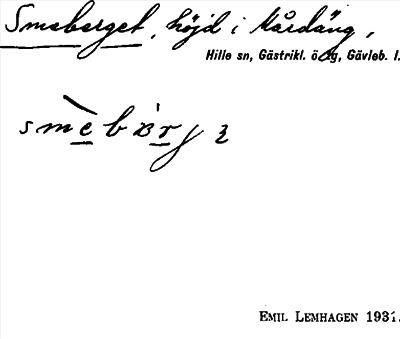 Smeberget, höjd i Mårdäng,
Hille sn, Gästrikl. ö. dg, Gävleb. l.
smebärjɜ
EMIL LEMHAGEN 1931.